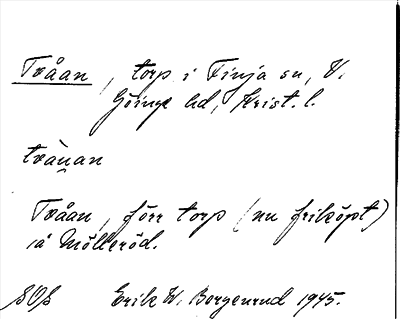 Tvåan, torp i Finja sn, V.
Göinge hd, Krist. l.
tvànan
Tvåan, förr torp (nu friköpt)
i å Mölleröd.
SOß Erik W. Borgenrud 1945.